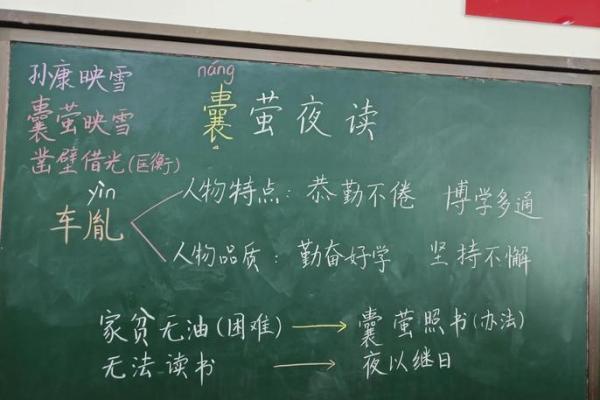 孙康映雪
囊萤映雪
凿壁借光(匡衡)
náng
囊萤夜读
yìn
车胤
人物特点：恭勤不倦 博学多通
人物品质：勤奋好学 坚持不懈
家贫无油(困难) → 囊萤照书(办法)
无法读书 → 夜以继日